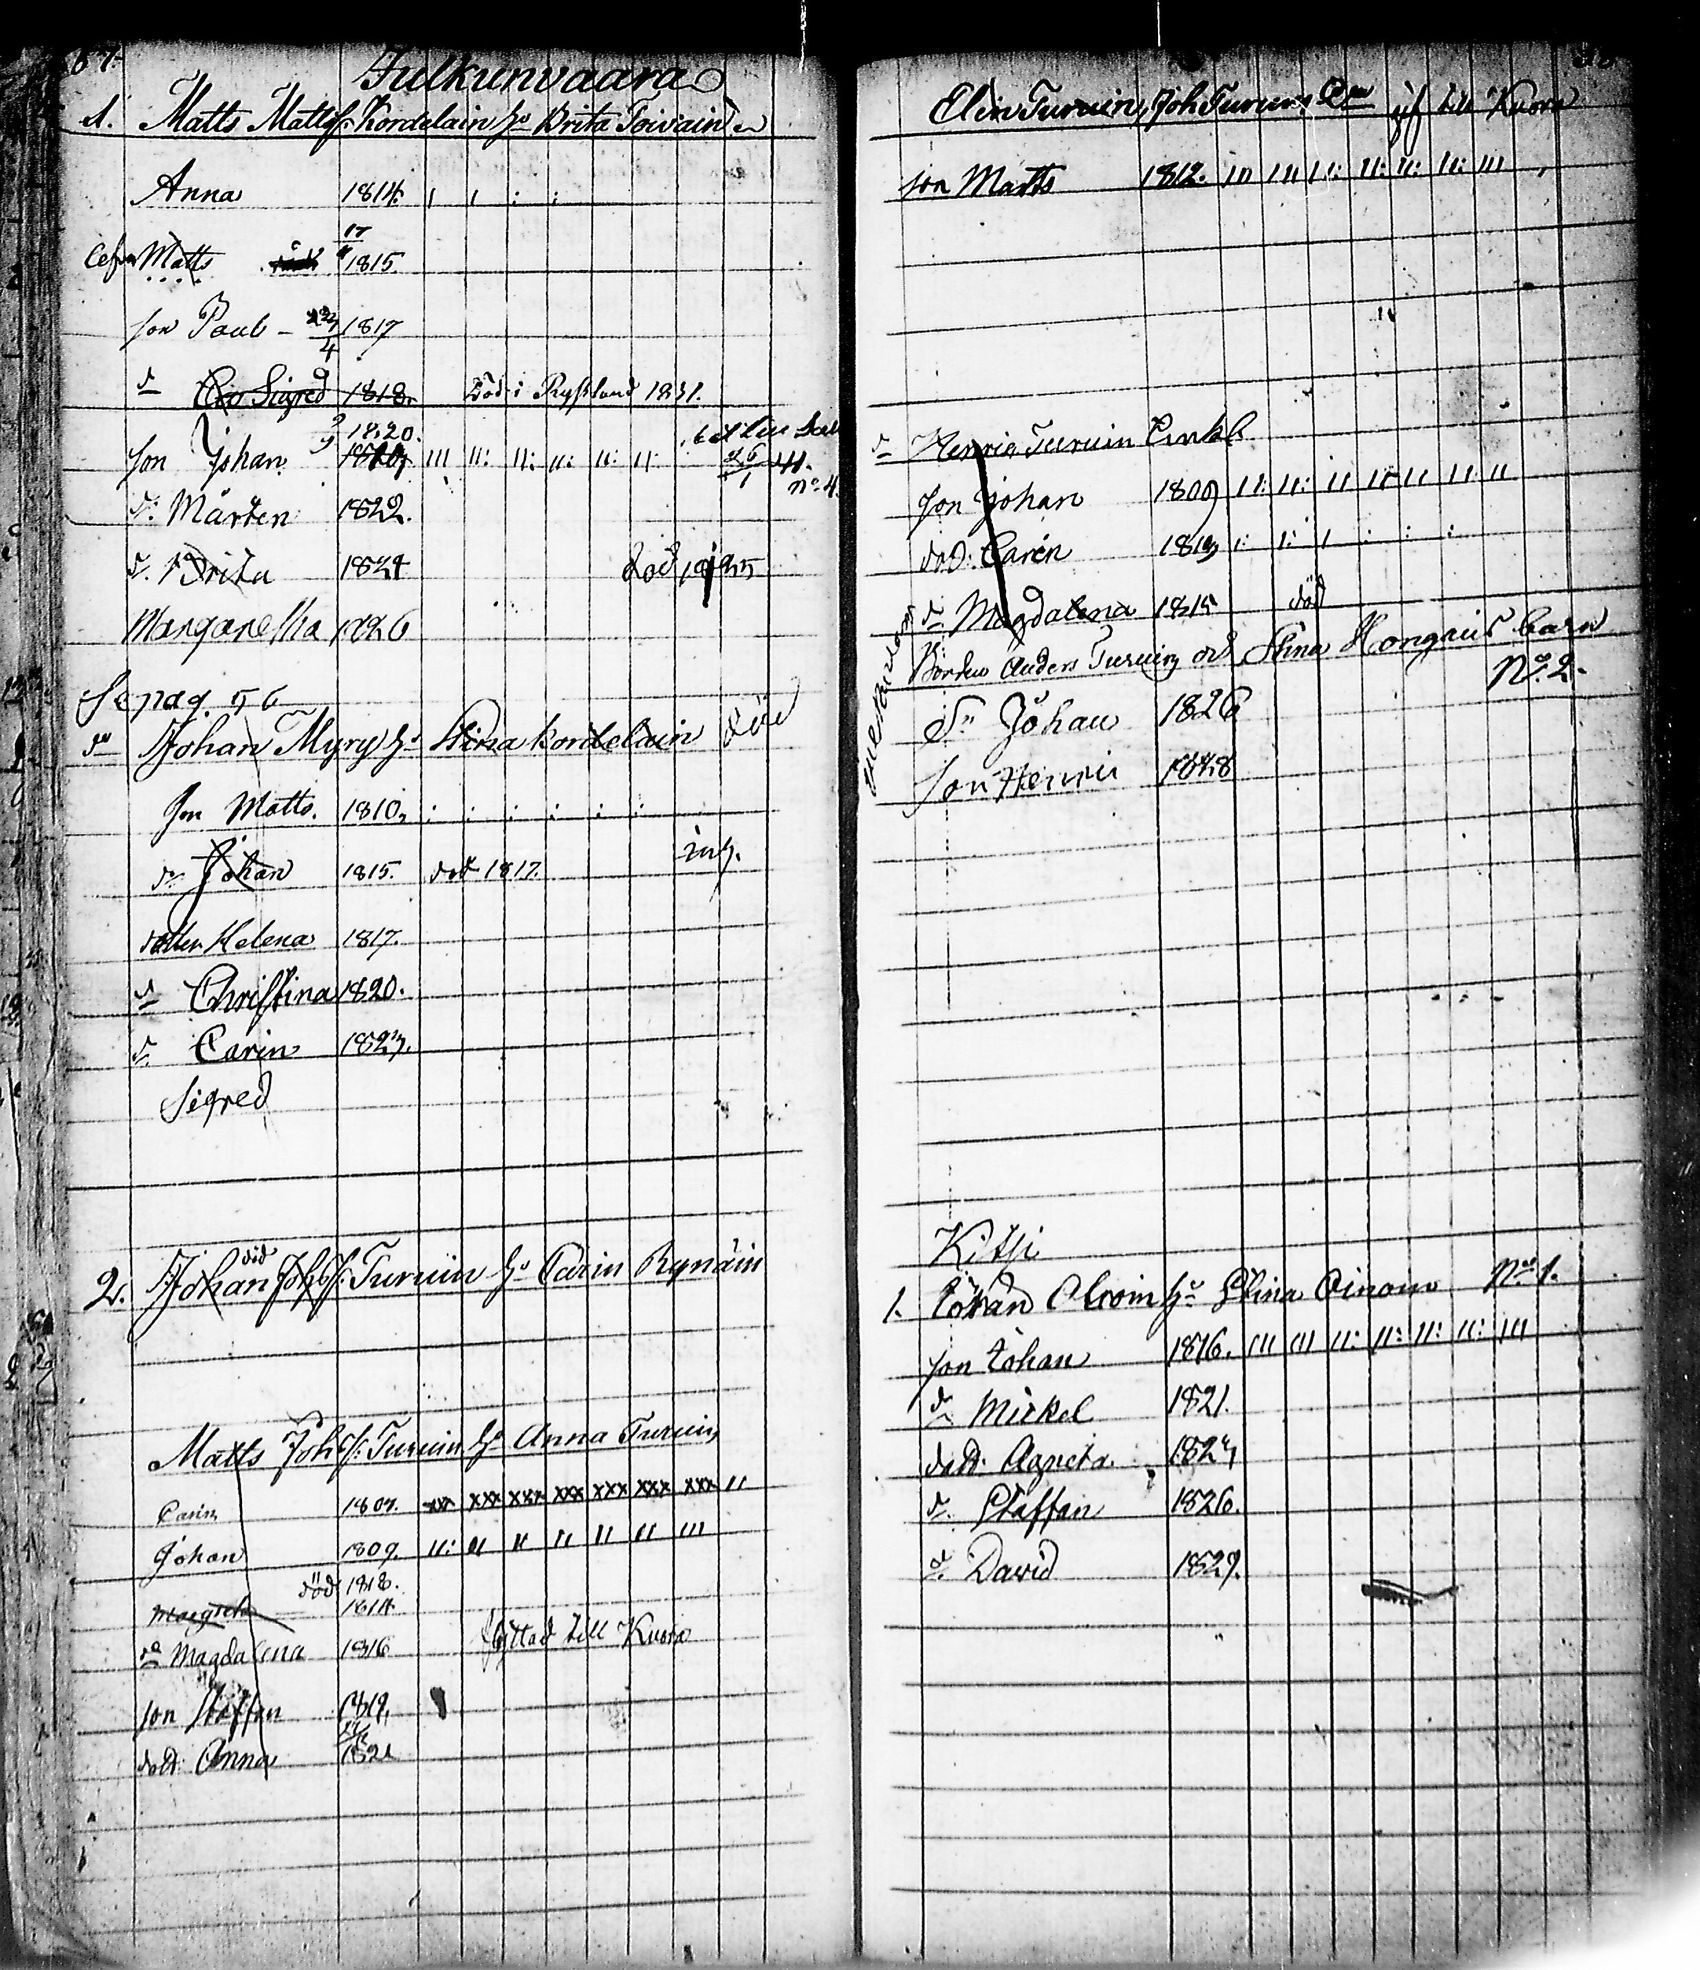 Julkunvaara
1. Matts Mattsſ: Kordelain hu Brita Toivain
Anna 1814.
Matts 17 1815.
ſon Paul - 23/4 1817
dr Sigred 1818. Död i Ryſsland 1831.
ſon Johan 1820. 26/1 No 4.
dn Mårten 1822.
dr. Brita 1824 död 1825
Margaretha 1826
Se pag. 56
dn Johan Myry hu Stina Kordelain död
ſon Matts. 1810,
dn Johan 1815. död 1817.
dotter Helena 1817.
dr Christina 1820.
dr Carin 1823.
Sigred
död
2. Johan Johsſ: Turuin hu Carin Rynäin
Matts Johsſ: Turuin hu Anna Turuin
Carin 1807. xx xxx xxx xxx xxx xxx xxx 11
Johan 1809. 11: 11 11 11 11 11 111
död 1818.
Margreta 1814
dr Magdalena 1816 flyttad till Kuora
ſon Staffan 1819.
dott: Anna 1821
Elin Turuin, Joh Turuins Enka gift till Kuora
ſon Matts 1812.
dn Henric Turuin Enkl
ſon Johan 1809
dott: Carin 1813
dr Magdalena 1815 död
Bonden Anders Turuin och Stina Hongais barn
No. 2.
Sn Johan 1826
ſon Henric 1828
Kitſi
1. Göran hu Stina Oinoin No 1.
ſon Johan 1816. 111 111 11: 11: 11: 11: 111
dn Mickel 1821.
dott. Agneta 1824
dn. Staffan 1826.
dn. David 1829.